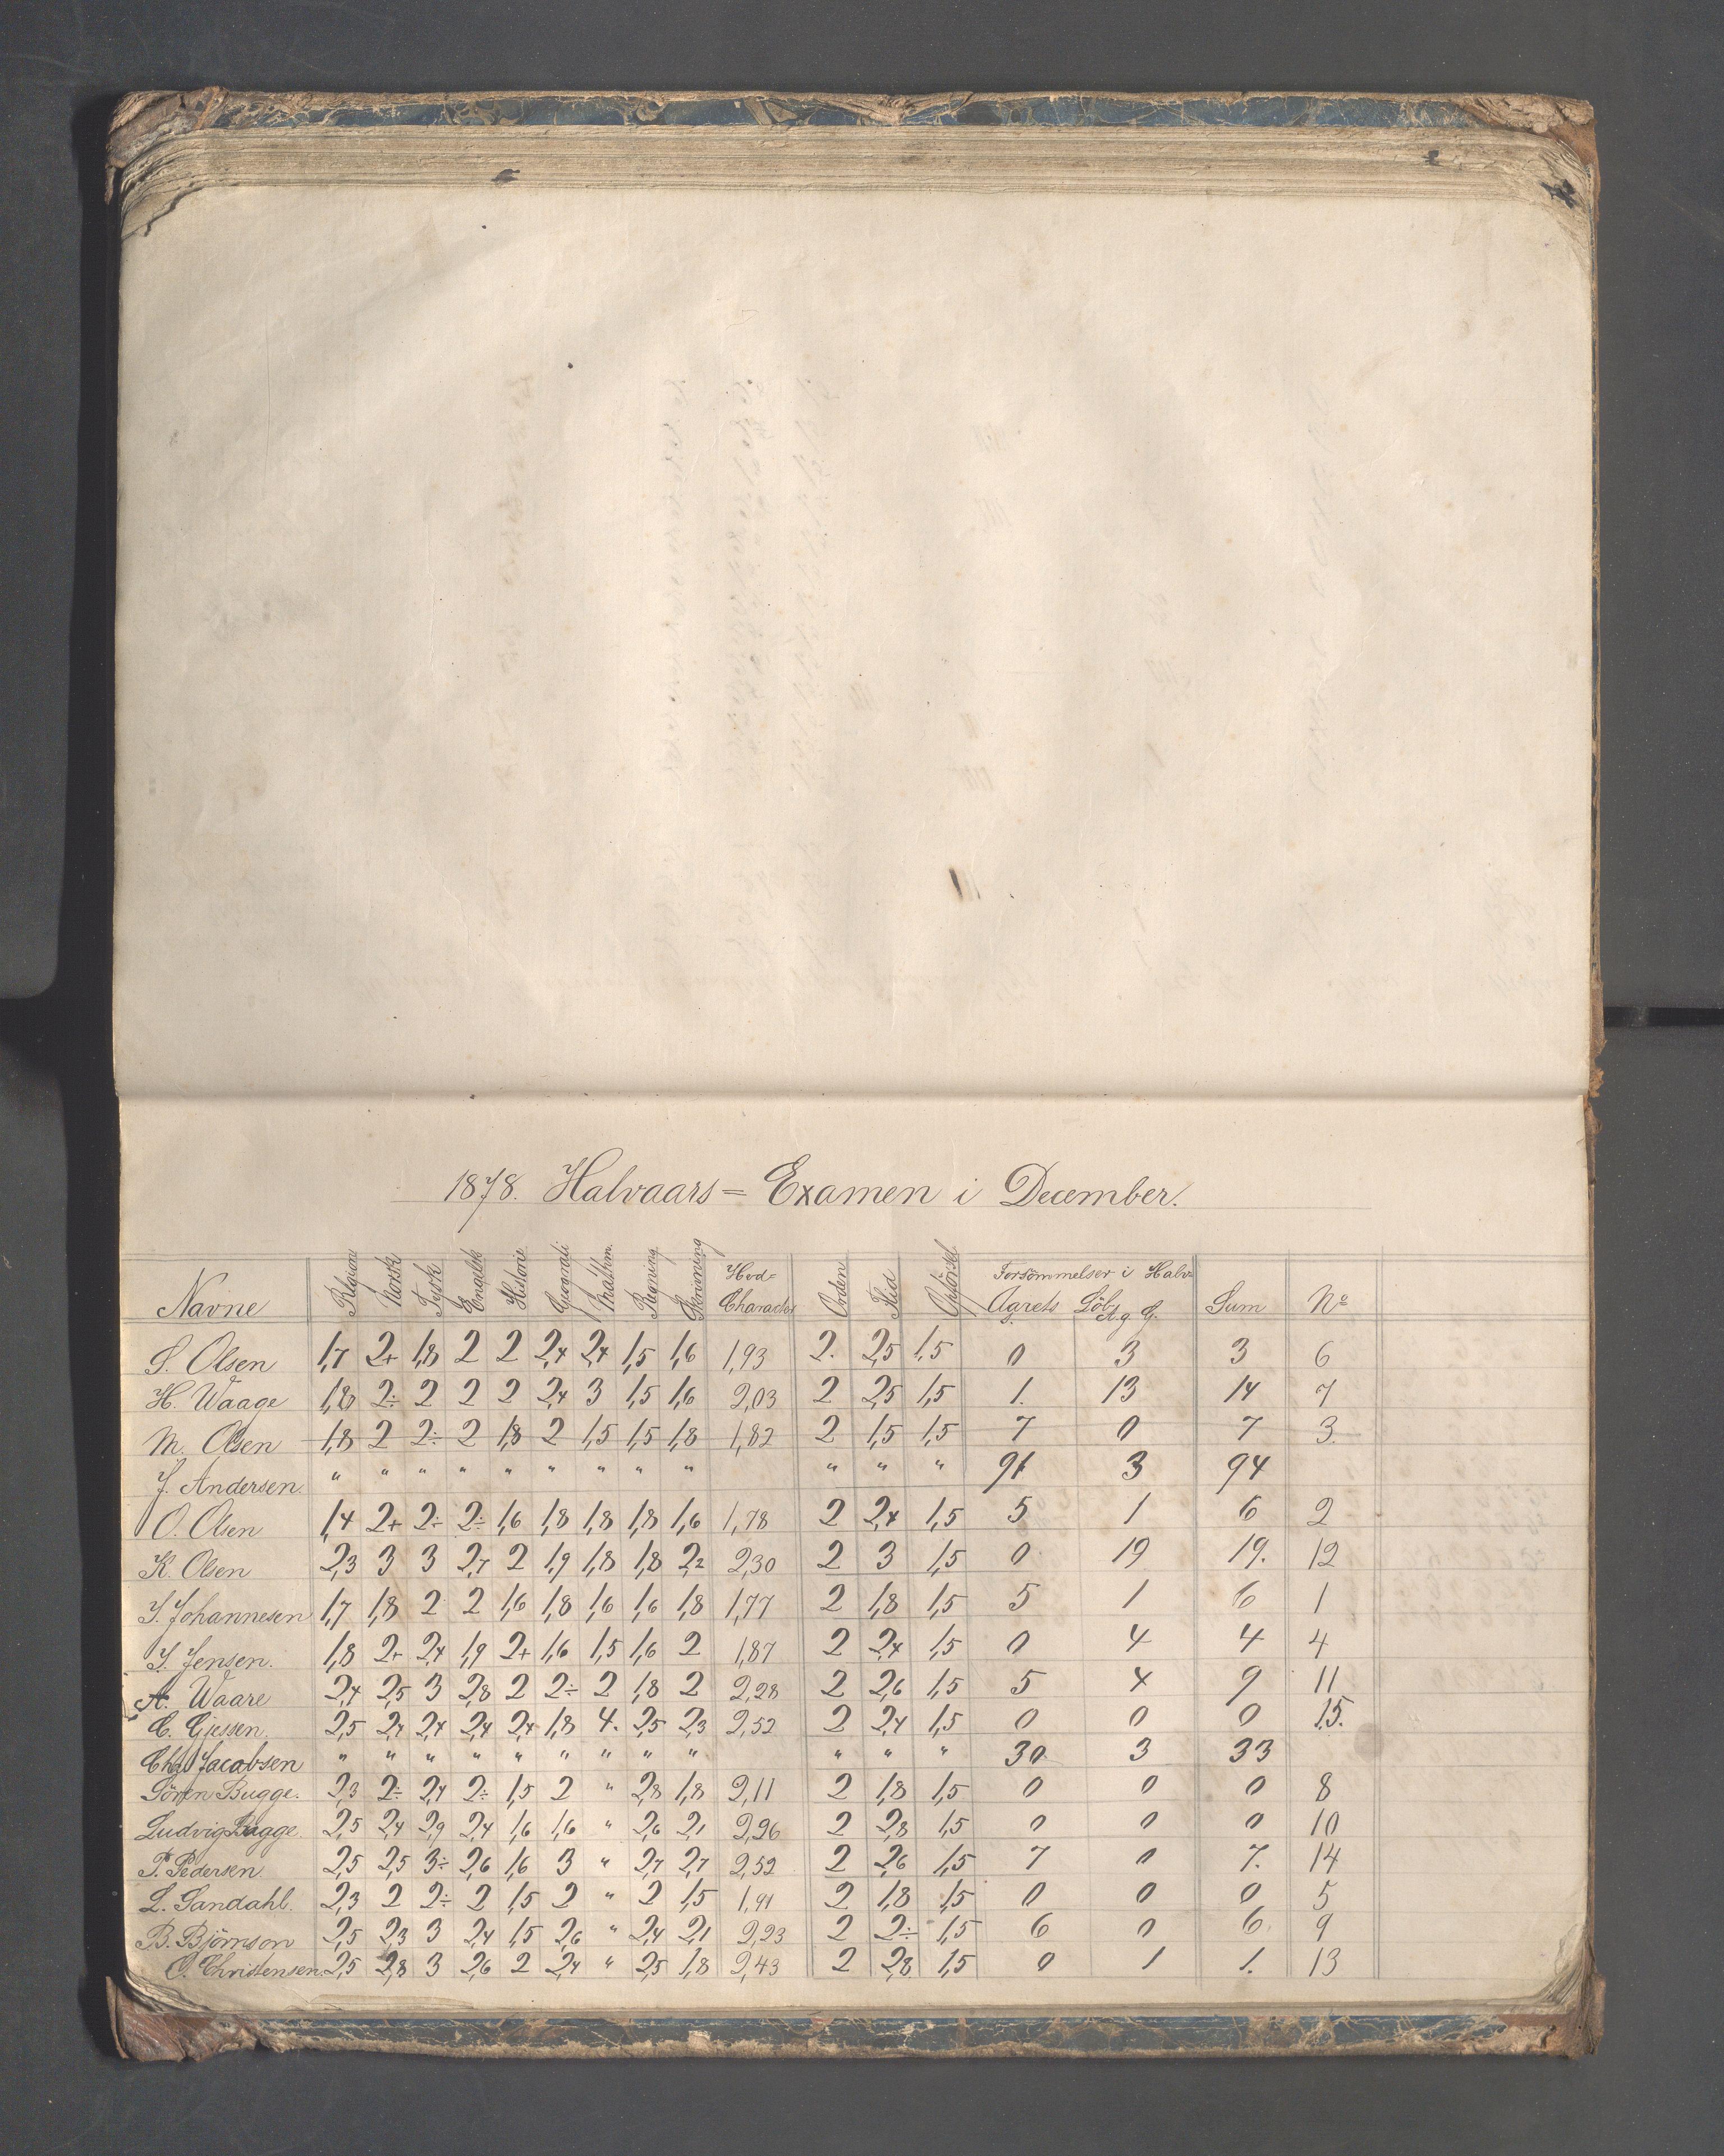 1878. Halvaars=Examen i December.
Navne Religion Norsk Tysk Engelsk Historie Geografi Mathm. Regning Skrivning Hvd=Charactер Orden Flid Opförsel Forsömmelser i Halv=Aarets Löb. S. g. G. Sum No
S. Olsen 1,7 2+ 1,8 2 2 2,4 2,4 1,5 1,6 1,93 2. 2,5 1,5 0 3 3 6
H. Waage 1,8 2÷ 2 2 2 2,4 3 1,5 1,6 2,03 2 2,5 1,5 1. 13 14 7
M. Olsen 1,8 2 2÷ 2 1,8 2 1,5 1,5 1,8 1,82 2 1,5 1,5 7 0 7 3.
J. Andersen. " " " " " " " " " " " " 91 3 94
O. Olsen 1,4 2+ 2÷ 2÷ 1,6 1,8 1,8 1,8 1,6 1,78 2 2,4 1,5 5 1 6 2
K. Olsen 2,3 3 3 2,7 2 1,9 1,8 1,8 2,2 2,30 2 3 1,5 0 19 19. 12
J. Johannesen 1,7 1,8 2 2 1,6 1,8 1,6 1,6 1,8 1,77 2 1,8 1,5 5 1 6 1
J. Jensen. 1,8 2+ 2,4 1,9 2+ 1,6 1,5 1,6 2 1,87 2 2,4 1,5 0 4 4 4
A. Waare 2,4 2,5 3 2,8 2 2÷ 2 1,8 2 2,28 2 2,6 1,5 5 4 9 11
C. Gjessen. 2,5 2,4 2,4 2,4 2,4 1,8 4. 2,5 2,3 2,52 2 2,4 1,5 0 0 0 15.
Chr. Jacobsen " " " " " " " " " " " " 30 3 33
Sören Bugge. 2,3 2÷ 2,4 2÷ 1,5 2 " 2,8 1,8 2,11 2 1,8 1,5 0 0 0 8
Ludvig Bugge. 2,5 2,4 2,9 2,4 1,6 1,6 " 2,6 2,1 2,26 2 2,8 1,5 0 0 0 10
P. Pedersen. 2,5 2,5 3÷ 2,6 1,6 3 " 2,7 2,7 2,52 2 2,6 1,5 7 0 7. 14
L. Sandahl. 2,3 2 2÷ 2 1,5 2 " 2 1,5 1,91 2 1,8 1,5 0 0 0 5
B. Björnson 2,5 2,3 3 2,4 1,5 2,6 " 2,4 2,1 2,23 2 2÷ 1,5 6 0 6. 9
O. Christensen. 2,5 2,8 3 2,6 2 2,4 " 2,5 1,8 2,43 2 2,8 1,5 0 1 1. 13